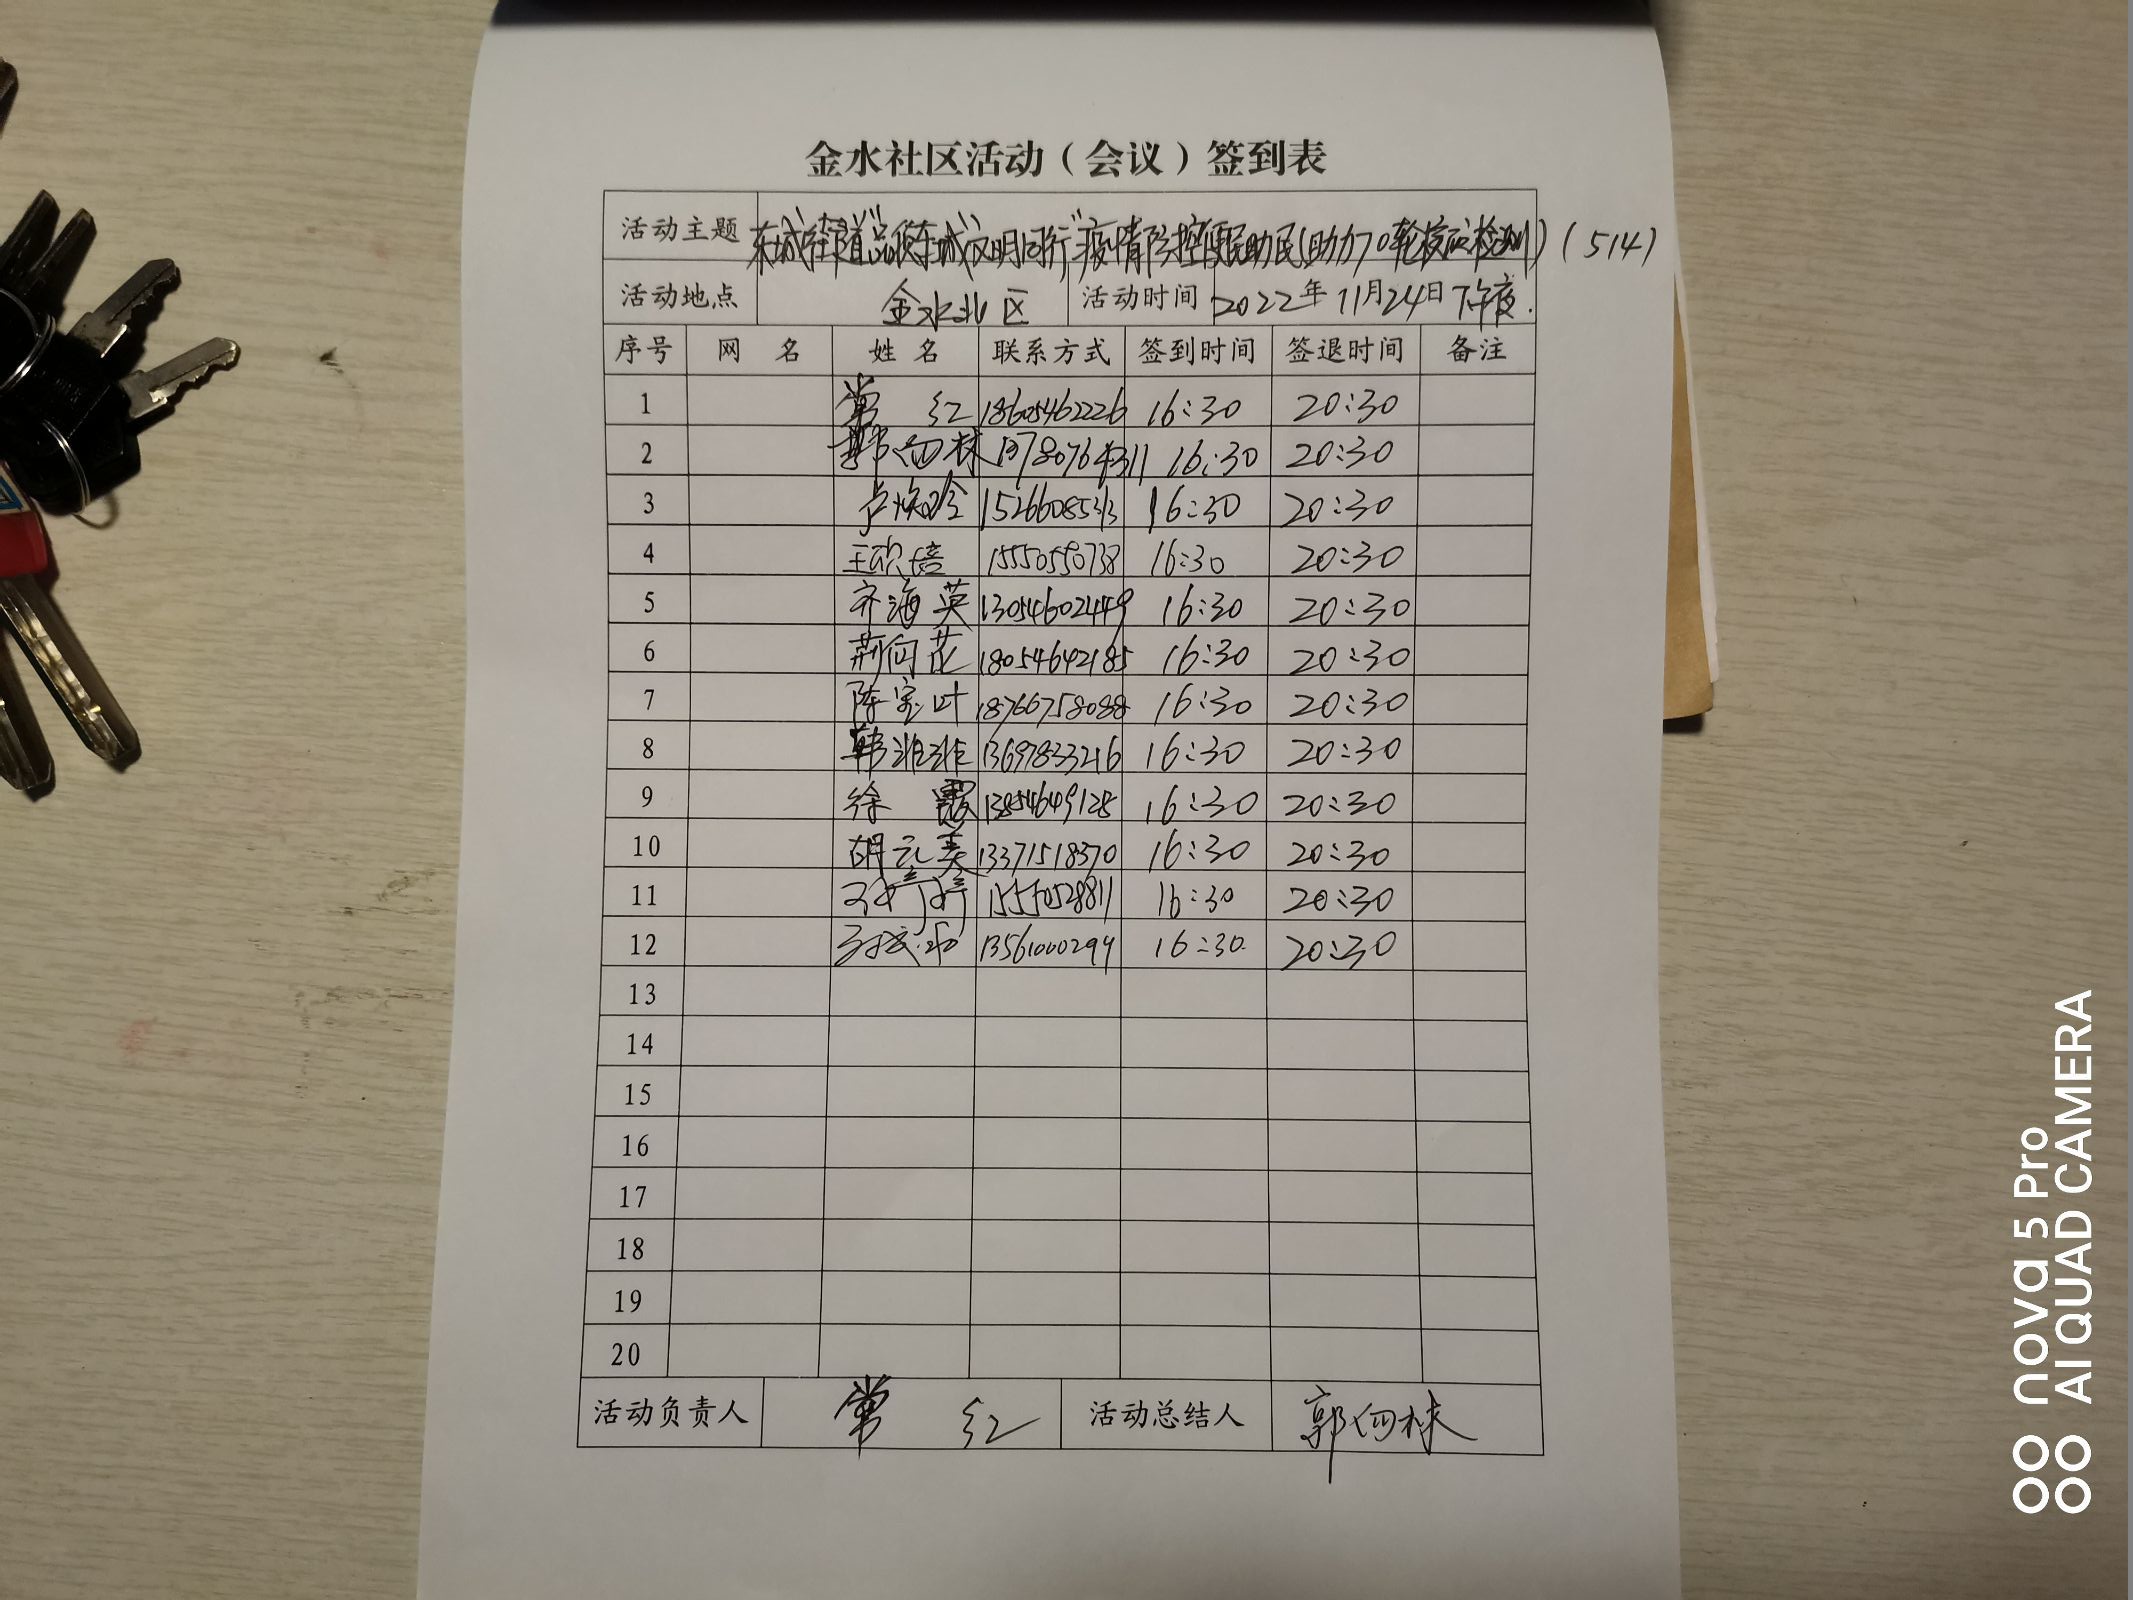 金水社区活动（会议）签到表
活动主题 东城街道"品质东城 文明同行"疫情防控便民助民(助力70轮核酸检测)（514）
活动地点 金水北区 活动时间 2022年11月24日下午夜.
序号 网 名 姓 名 联系方式 签到时间 签退时间 备注
1 常 红 18605462226 16:30 20:30
2 郭向林 13780764311 16:30 20:30
3 卢焕玲 15266085313 16:30 20:30
4 王欣培 15550550738 16:30 20:30
5 齐海英 13054602449 16:30 20:30
6 荆向花 18054642185 16:30 20:30
7 陈宝叶 18766758088 16:30 20:30
8 韩 13697833216 16:30 20:30
9 徐 霞 13854649128 16:30 20:30
10 胡元美 13371518370 16:30 20:30
11 15550528811 16:30 20:30
12 13561000294 16:30 20:30
13
14
15
16
17
18
19
20
活动负责人 常 红 活动总结人 郭向林
nova 5 Pro
AI QUAD CAMERA